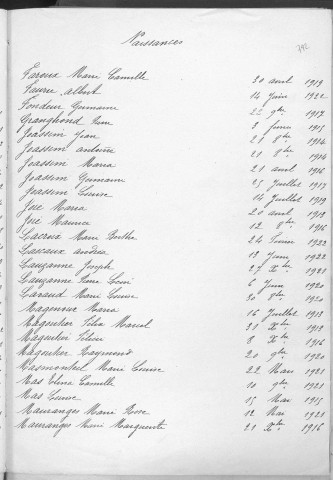 Naissances
792
Faroux Marie Camille 30 avril 1919
Faurie albert 14 Juin 1922
Fondeur Germaine 22 9bre 1917
Granghond 3 1917
Joassim Jean 21 8bre 1914
Joassim antoine 21 8bre 1914
Joassim Maria 21 avril 1916
Joassim Germaine 25 Juillet 1917
Joassim Louise 14 Juillet 1919
José Maria 20 avril 1918
José Maurice 12 8bre 1916
Lacroix Marie Berthe 24 1922
Lascaux andréa 13 Juin 1922
Lauzanne Joseph 27 Xbre 1921
Lauzanne Pierre Louis 6 Juin 1920
Lavaud Marie Louise 30 8bre 1920
Mageneux Maria 16 Juillet 1918
Magenthier Félix Marcel 31 Xbre 1913
Magenthier 8 Xbre 1916
Magenthier Raymond 20 9bre 1920
Masmonteil Marie Louise 22 Mars 1921
Mas Elena Camille 10 9bre 1921
Mas Louise 15 Mai 1915
Mauranges Marie Rose 12 Mai 1921
Mauranges Marie Marguerite 21 Xbre 1916